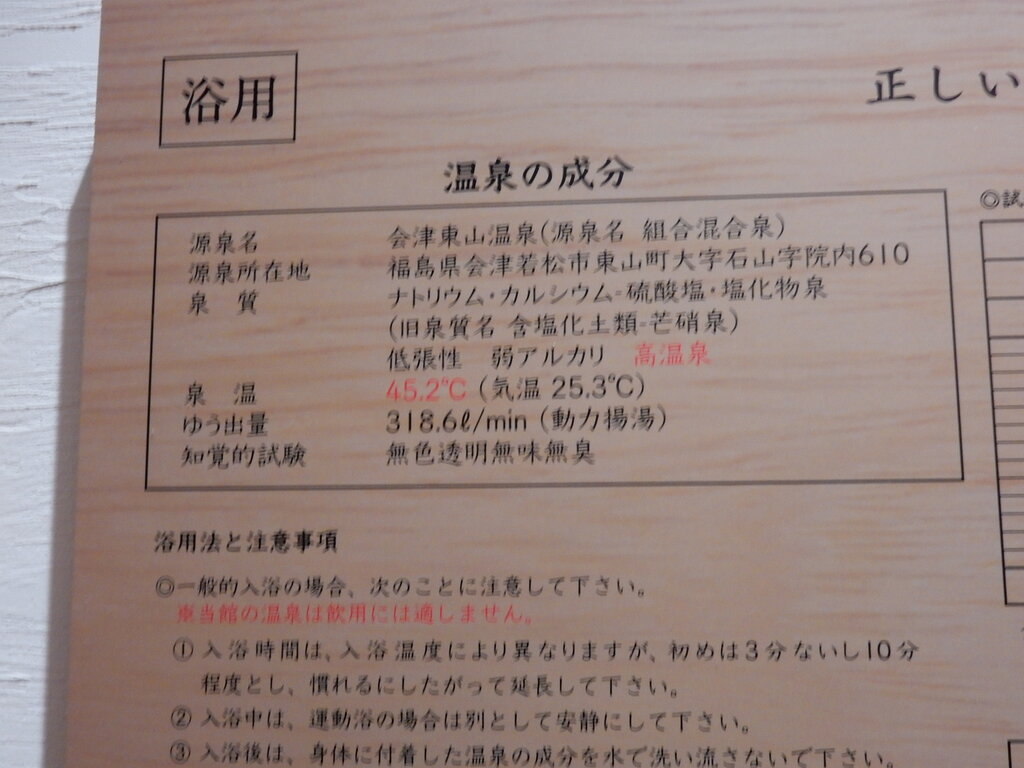 浴用
正しい
温泉の成分
◎試
源泉名 会津東山温泉(源泉名 組合混合泉)
源泉所在地 福島県会津若松市東山町大字石山字院内610
泉 質 ナトリウム・カルシウム-硫酸塩・塩化物泉
(旧泉質名 含塩化土類-芒硝泉)
低張性 弱アルカリ 高温泉
泉 温 45.2℃ (気温 25.3℃)
ゆう出量 318.6ℓ/min (動力揚湯)
知覚的試験 無色透明無味無臭
浴用法と注意事項
◎一般的入浴の場合、次のことに注意して下さい。
※当館の温泉は飲用には適しません。
① 入浴時間は、入浴温度により異なりますが、初めは3分ないし10分
程度とし、慣れるにしたがって延長して下さい。
② 入浴中は、運動浴の場合は別として安静にして下さい。
③ 入浴後は、身体に付着した温泉の成分を水で洗い流さないで下さい。